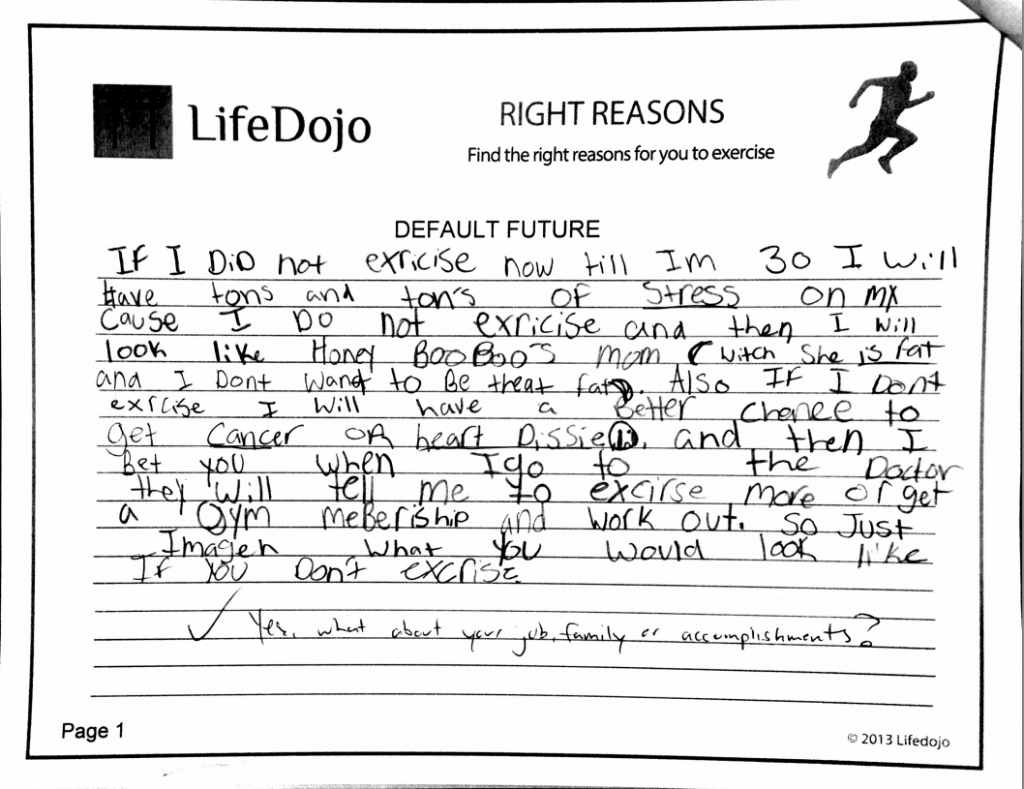 LifeDojo
RIGHT REASONS
Find the right reasons for you to exercise
DEFAULT FUTURE
If I DiD not exricise now till Im 30 I will
Have tons and ton's OF Stress on my
Cause I Do not exricise and then I will
look like Honey BooBoo's mom (witch She is fat
and I Dont want to Be theat fat). Also IF I Dont
exrcise I will have a Better chance to
get Cancer OR heart Dissie. and then I
Bet you when I go to the Doctor
they will tell me to excirse more or get
a Gym meBeriship and work out. So Just
Imagen what you would look like
If you Don't excrise
✓ Yes, what about your job, family or accomplishments?
Page 1
© 2013 Lifedojo